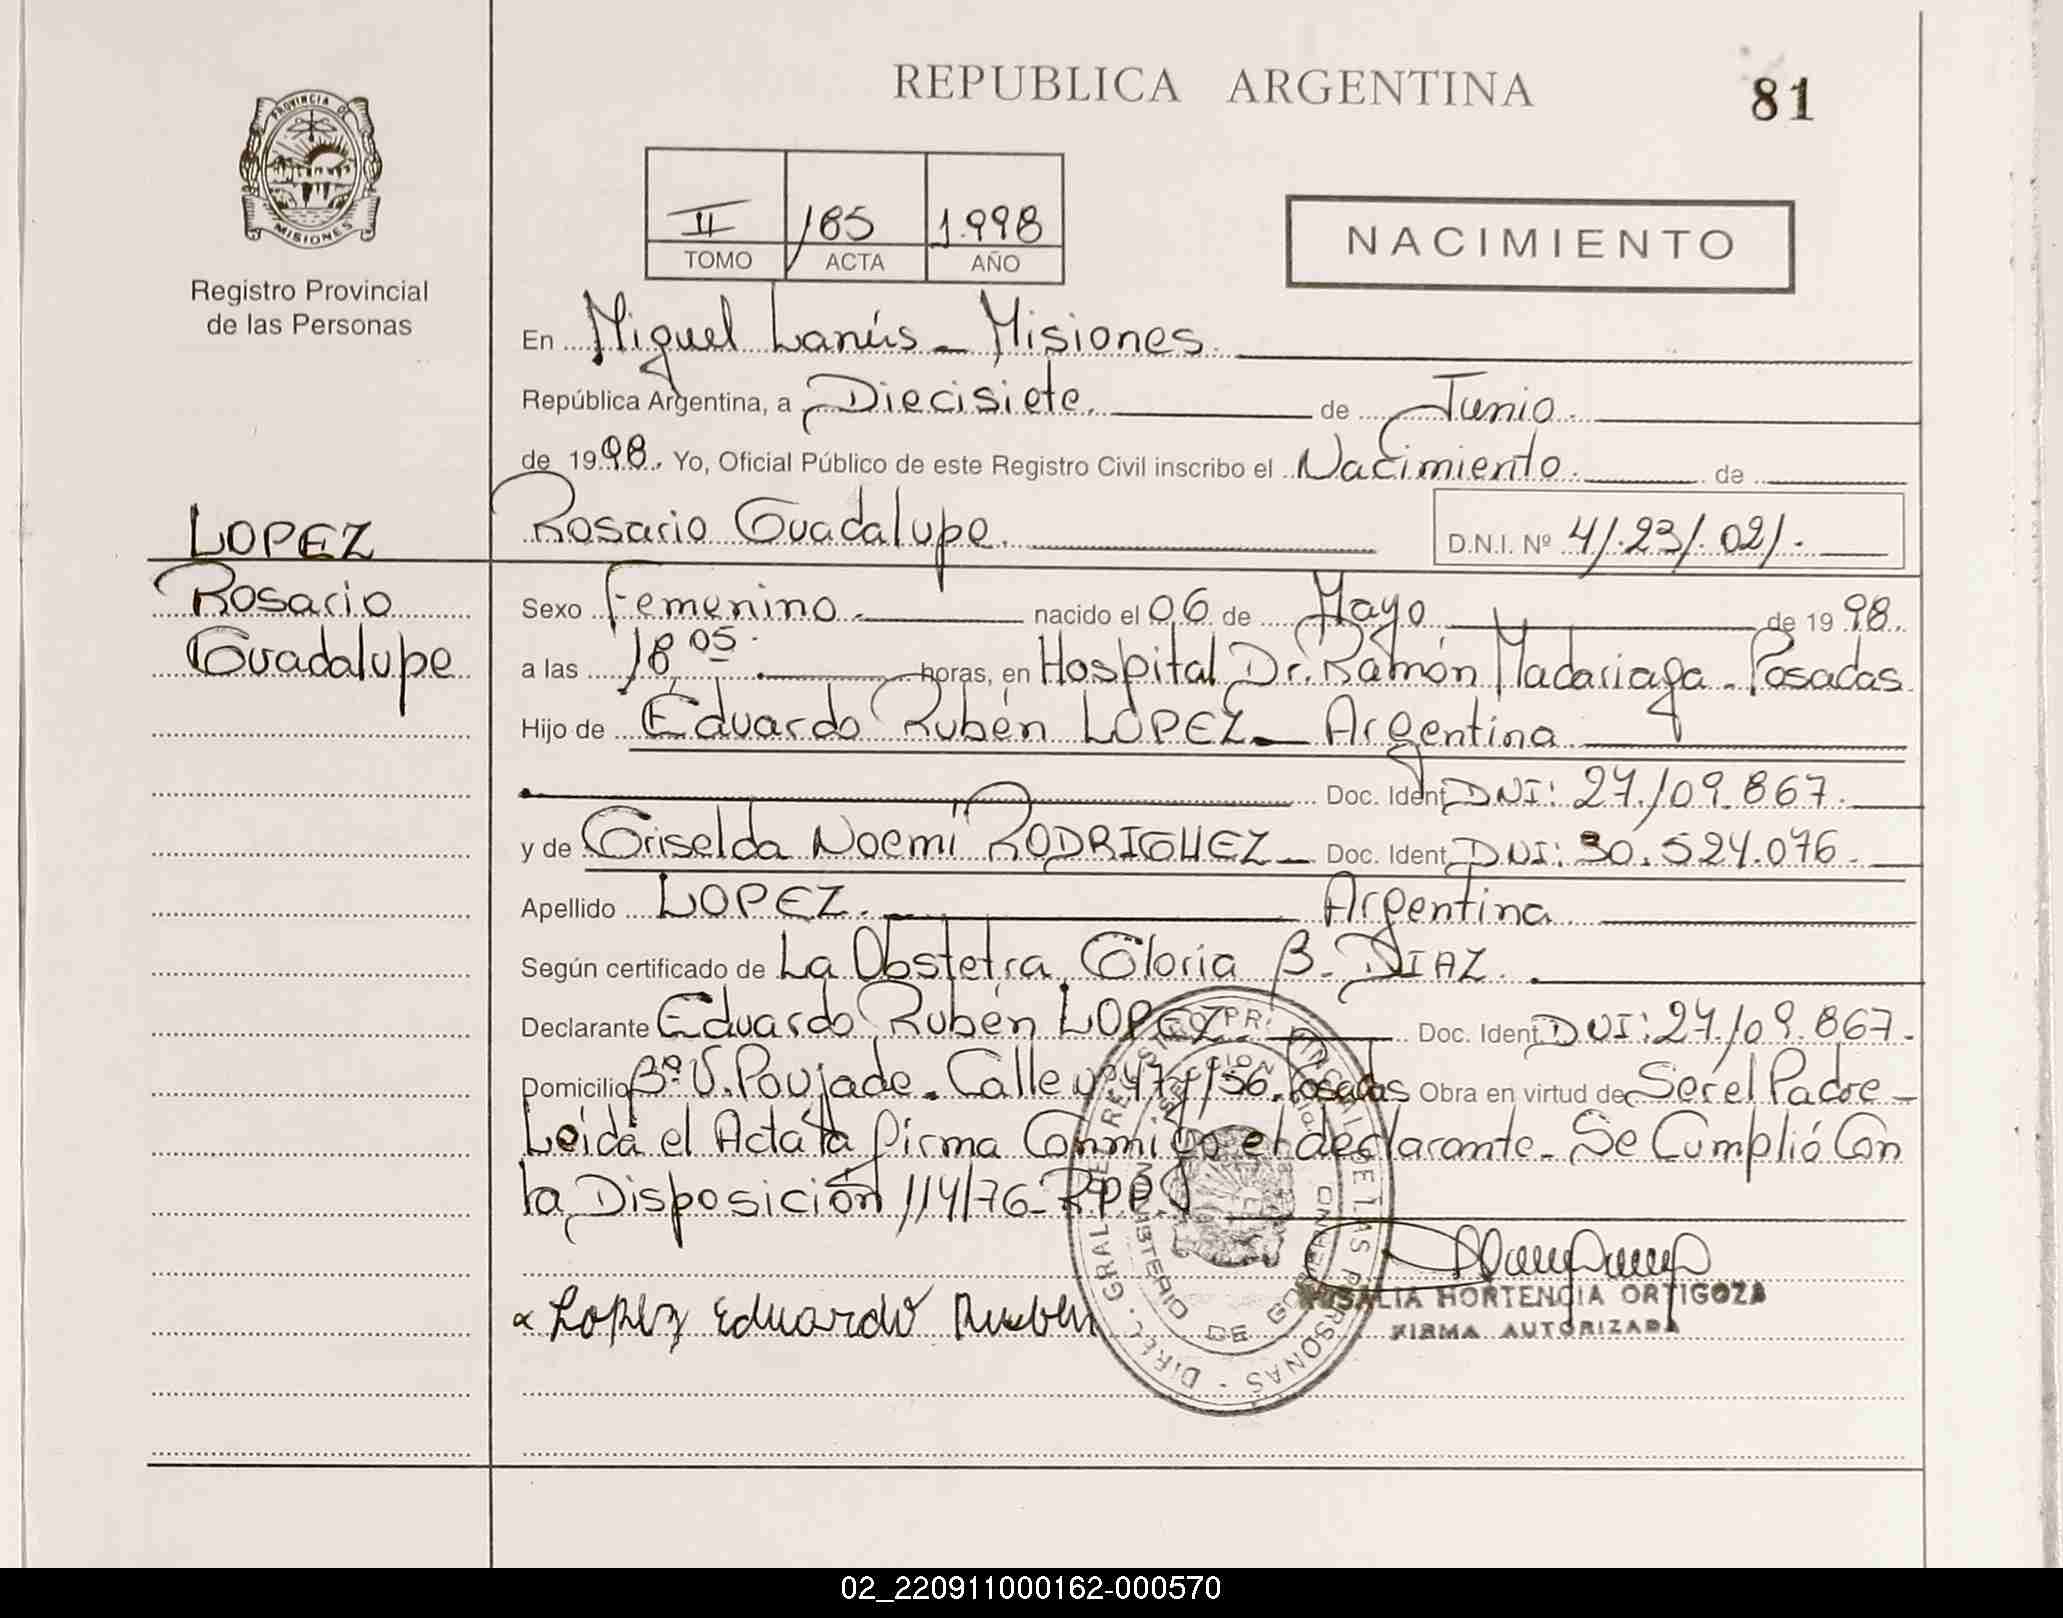 REPUBLICA ARGENTINA
81
PROVINCIA DE
MISIONES
Registro Provincial
de las Personas
II 185 1.998
TOMO ACTA AÑO
NACIMIENTO
En Miguel Lanús - Misiones.
República Argentina, a Diecisiete. de Junio.
de 1998. Yo, Oficial Público de este Registro Civil inscribo el Nacimiento. de
LOPEZ
Rosario Guadalupe
Rosario Guadalupe. D.N.I. Nº 41.231.021.
Sexo Femenino. nacido el 06 de Mayo de 1998.
a las 18,05. horas, en Hospital Dr. Ramón Madariaga - Posadas
Hijo de Eduardo Rubén LOPEZ - Argentina
Doc. Ident. DNI: 27.109.867.
y de Griselda Noemí RODRIGUEZ - Doc. Ident. DNI: 30.524.076.
Apellido LOPEZ. Argentina
Según certificado de La Obstetra Gloria B. DIAZ.
Declarante Eduardo Rubén LOPEZ. Doc. Ident. DNI: 27.109.867.
Domicilio Bº. V. Poujade. Calle Posadas Obra en virtud de Ser el Padre -
Leida el Acta la firma Conmigo el declarante - Se Cumplió Con
la Disposición 114/76 - R.P.P.
Lopez Eduardo Ruben
ORTIGOZA HORTENCIA
FIRMA AUTORIZADA
DIREC. GRAL. DEL REGISTRO PROVINCIAL DE LAS PERSONAS
MINISTERIO DE GOBIERNO
02_220911000162-000570